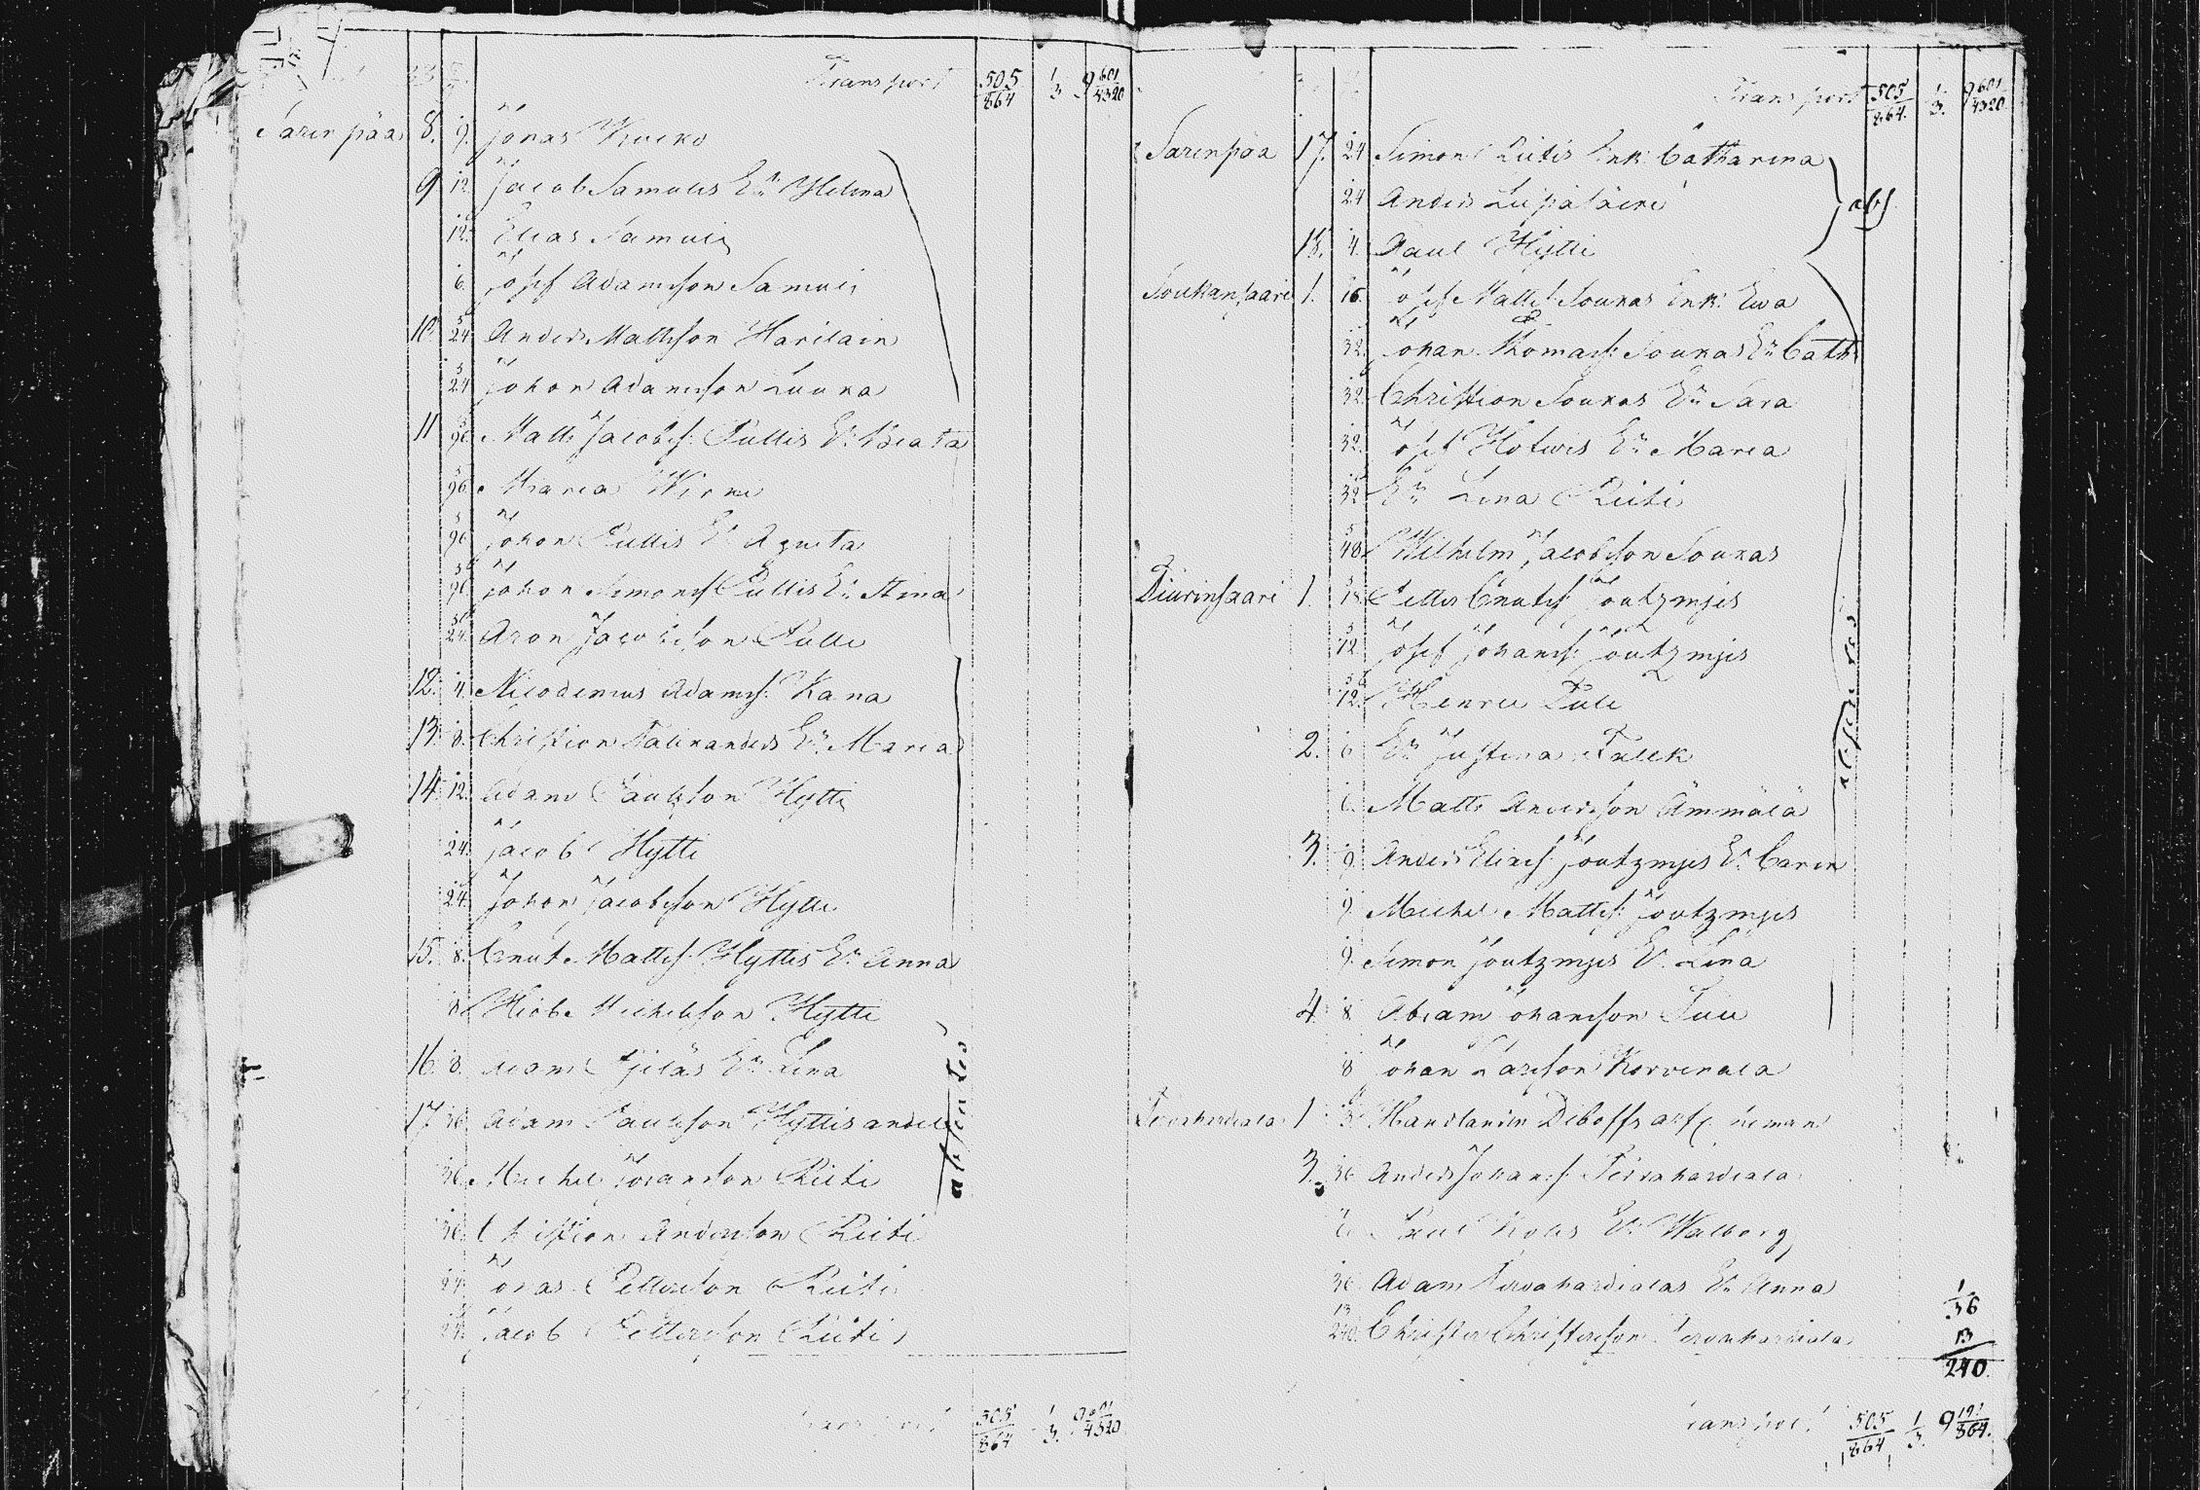 Transport 505/864 1/3 9 601/4320
Sarenpää 8. 9. Jonas Kucko
9 12. Jacob Samuls En: Helena
12. Elias Samuli
6. Josef Adamsson Samuli
10. 5/24 Anders Mattsson Harilain
5/24 Johan Adamsson Luuka
11 5/96 Matts Jacobss: Pullis En: Beata
5/96 Maria Wirni
5/96 Johan Pullis En: Agneta
5/96 Johan Simonss Pullis En: Stina
5/24 Aron Jacobsson Pulli
12. 4. Nicodemus Adamss: Kana
13. 8. Christion En: Maria
14. 12. Adam Paulsson Hytti
24. Jacob Hytti
24. Johan Jacobsson Hytti
15. 8. Cnut Mattss: Hyttis En: Anna
8. Hiob Michelsson Hytti
16. 8. Adam En: Lena
17 36. Adam Paulsson Hyttis andel
36. Michel Johansson Riiti
36. Christion Andersson Riiti
24. Jonas Pettersson Riiti
24. Jacob Pettersson Riiti
absentes
Transport 505/864 1/3. 9 601/4320
Transport 505/864. 1/3. 9 601/4320
Sarenpää 17. 24 Simon Riitis Enk: Catharina
24 Anders
18. 4. Paul Hytti
abs.
Soukansaari 1. 16. Josef Mattss Soukas Enk: Ewa
32. Johan Thomass: Soukas En: Cath:
32. Christion Soukas En: Sara
32. Josef Hotwis En: Maria
32 En: Lena Riiti
5/48 Wilhelm Jacobsson Soukas
Tiurinsaari 1. 5/18. Petter Cnutss: Joutzmjes
5/12 Josef Johanss: Joutzmjes
5/12. Henric Puli
2. 6 En: Justina Falck
6. Matts Andersson Ämmälä
3. 9. Anders Eliass: Joutzmjes En: Caren
9. Michel Mattss: Joutzmjes
9. Simon Joutzmjes En: Lena
4. 8. Abram Johansson Suu
8 Johan Larsson Korvenala
absentes
Terwahardiala 1 Handlanden
3. 36 Anders Johanss: Terwahardiala
Paul En: Walborg
36 Adam Terwahardialas En: Anna 1/36
13/240. Christer Christersson Terwahardiala 13/240.
Transport 505/864 1/3. 9 191/864.